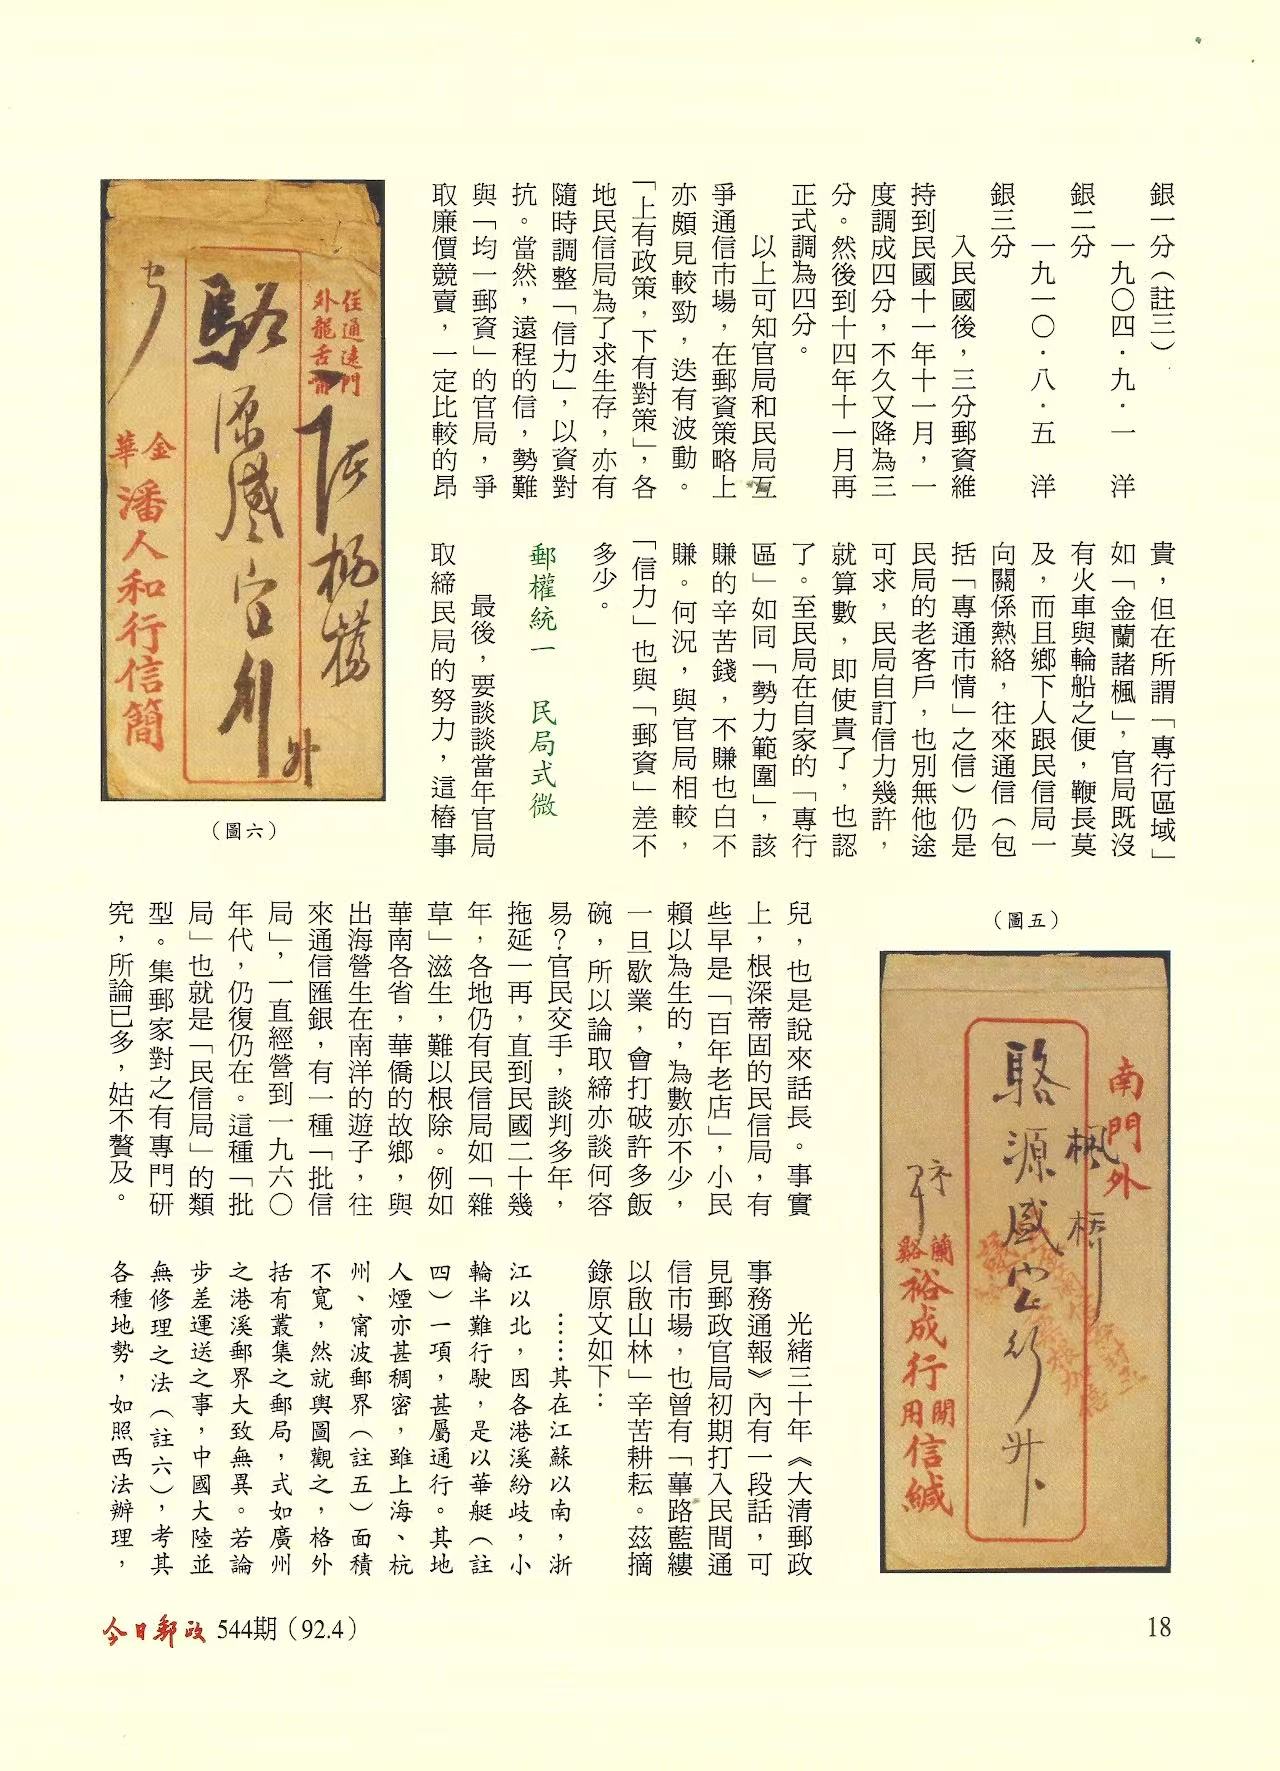 銀一分(註三)
一九〇四．九．一　洋
銀二分
一九一〇．八．五　洋
銀三分
入民國後，三分郵資維
持到民國十一年十一月，一
度調成四分，不久又降為三
分。然後到十四年十一月再
正式調為四分。
以上可知官局和民局互
爭通信市場，在郵資策略上
亦頗見較勁，迭有波動。
「上有政策，下有對策」，各
地民信局為了求生存，亦有
隨時調整「信力」，以資對
抗。當然，遠程的信，勢難
與「均一郵資」的官局，爭
取廉價競賣，一定比較的昂
貴，但在所謂「專行區域」
如「金蘭諸楓」，官局既沒
有火車與輪船之便，鞭長莫
及，而且鄉下人跟民信局一
向關係熱絡，往來通信（包
括「專通市情」之信）仍是
民局的老客戶，也別無他途
可求，民局自訂信力幾許，
就算數，即使貴了，也認
了。至民局在自家的「專行
區」如同「勢力範圍」，該
賺的辛苦錢，不賺也白不
賺。何況，與官局相較，
「信力」也與「郵資」差不
多少。
郵權統一　民局式微
最後，要談談當年官局
取締民局的努力，這樁事
兒，也是說來話長。事實
上，根深蒂固的民信局，有
些早是「百年老店」，小民
賴以為生的，為數亦不少，
一旦歇業，會打破許多飯
碗，所以論取締亦談何容
易？官民交手，談判多年，
拖延一再，直到民國二十幾
年，各地仍有民信局如「雜
草」滋生，難以根除。例如
華南各省，華僑的故鄉，與
出海營生在南洋的遊子，往
來通信匯銀，有一種「批信
局」，一直經營到一九六〇
年代，仍復仍在。這種「批
局」也就是「民信局」的類
型。集郵家對之有專門研
究，所論已多，姑不贅及。
光緒三十年《大清郵政
事務通報》內有一段話，可
見郵政官局初期打入民間通
信市場，也曾有「篳路藍縷
以啟山林」辛苦耕耘。茲摘
錄原文如下：
……其在江蘇以南，浙
江以北，因各港溪紛歧，小
輪半難行駛，是以華艇（註
四）一項，甚屬通行。其地
人煙亦甚稠密，雖上海、杭
州、甯波郵界（註五）面積
不寬，然就輿圖觀之，格外
括有叢集之郵局，式如廣州
之港溪郵界大致無異。若論
步差運送之事，中國大陸並
無修理之法（註六），考其
各種地勢，如照西法辦理，
（圖六）
往通遠門
外龍舌嘴
楊橋
駱源盛宝行
升
金華
潘人和行信簡
（圖五）
南門外
楓橋
駱源盛宝行升
蘭谿
裕成行
開用
信緘
今日郵政 544期（92.4）
18